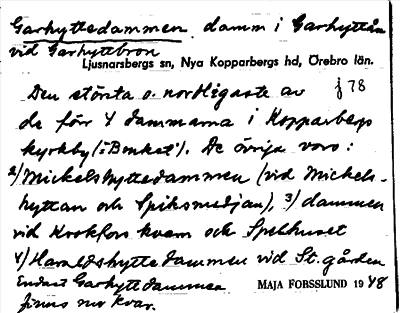 Garhyttedammen, damm i Garhyttån
vid Garhyttebron
Ljusnarsbergs sn, Nya Kopparbergs hd, Örebro län.
Den största o. nordligaste av § 78
de förr 4 dammarna i Kopparbergs
kyrkby (i "Bruket"). De övriga voro:
2/ Mickelshyttedammen (vid Mickels-
hyttan och Spiksmedjan), 3/ dammen
vid Krokfors kvarn och Spelhuset
4/ Haraldshyttedammen vid St. gården
Endast Garhyttdammen
finns nu kvar.
MAJA FORSSLUND 1948